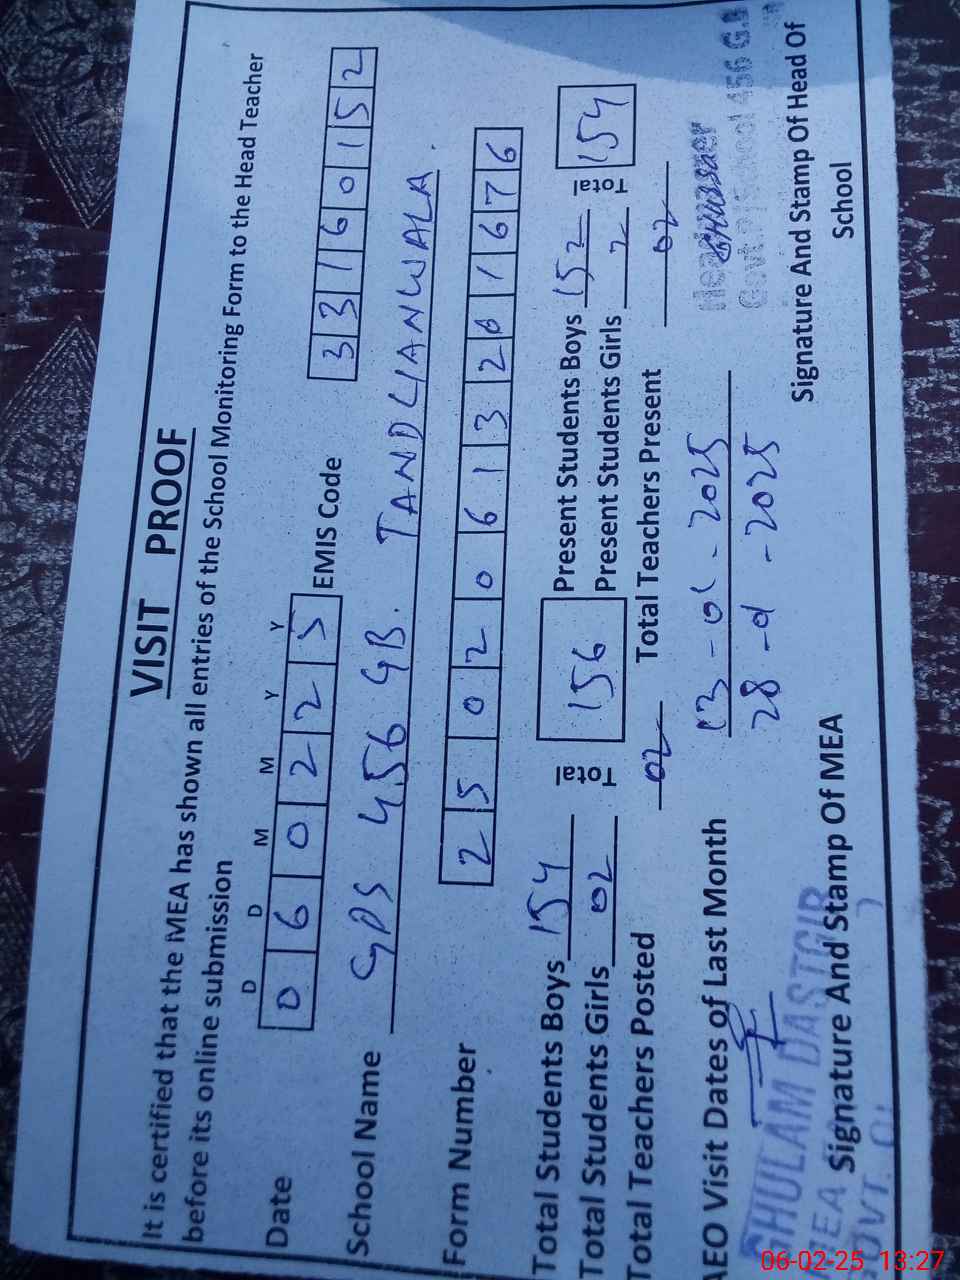 VISIT PROOF
It is certified that the MEA has shown all entries of the School Monitoring Form to the Head Teacher
before its online submission
D D M M Y Y
Date 0 6 0 2 2 5 EMIS Code 3 3 1 6 0 1 5 2
School Name GPS 456 GB. TANDLIANWALA.
Form Number 2 5 0 2 0 6 1 3 2 0 1 6 7 6
Total Students Boys 154 Total 156 Present Students Boys 152 Total 154
Total Students Girls 02 Present Students Girls 2
Total Teachers Posted 02 Total Teachers Present 02
AEO Visit Dates of Last Month 13-01-2025
28-01-2025
Headmaster
Govt. School 456 G.B
GHULAM DASTGIR
MEA
GOVT. OF
Signature And Stamp Of MEA
Signature And Stamp Of Head Of
School
06-02-25 13:27